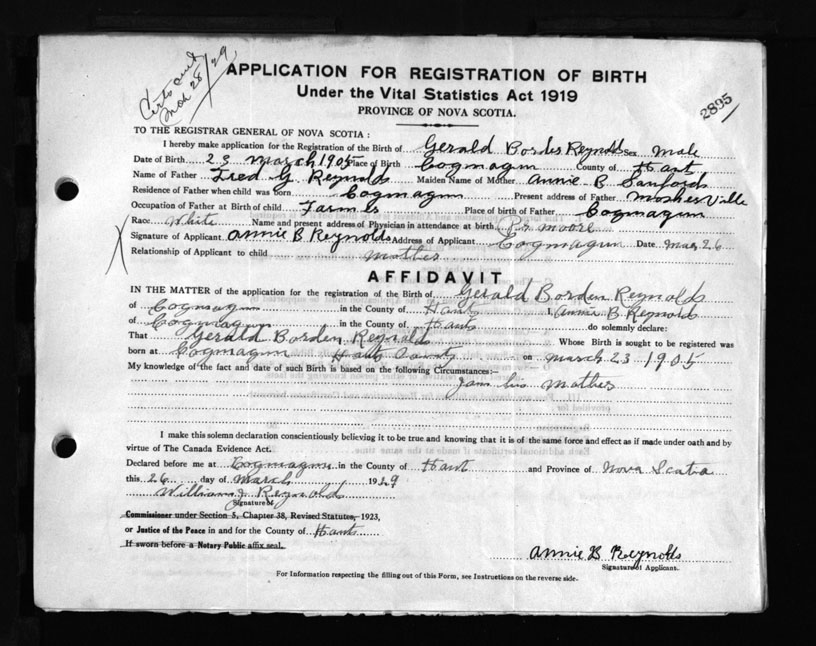 Mch 28/29
APPLICATION FOR REGISTRATION OF BIRTH
Under the Vital Statistics Act 1919
PROVINCE OF NOVA SCOTIA.
2895
TO THE REGISTRAR GENERAL OF NOVA SCOTIA:
I hereby make application for the Registration of the Birth of Gerald Borden Reynolds Sex Male
Date of Birth 23 March 1905 Place of Birth Cogmagun County of Hant
Name of Father Fred G Reynolds Maiden Name of Mother Annie B Sanford
Residence of Father when child was born Cogmagun Present address of Father Mosherville
Occupation of Father at Birth of child Farmer Place of birth of Father Cogmagun
Race White Name and present address of Physician in attendance at birth Dr Moore
Signature of Applicant Annie B Reynolds Address of Applicant Cogmagun Date Mar 26
Relationship of Applicant to child Mother
AFFIDAVIT
IN THE MATTER of the application for the registration of the Birth of Gerald Borden Reynolds
of Cogmagun in the County of Hants I, Annie B Reynolds
of Cogmagun in the County of Hants do solemnly declare:
That Gerald Borden Reynolds Whose Birth is sought to be registered was
born at Cogmagun Hants County on March 23 1905
My knowledge of the fact and date of such Birth is based on the following Circumstances:—
I am his Mother
I make this solemn declaration conscientiously believing it to be true and knowing that it is of the same force and effect as if made under oath and by
virtue of The Canada Evidence Act.
Declared before me at Cogmagun in the County of Hant and Province of Nova Scotia
this 26 day of March 1929
William J Reynolds
Signature of
Commissioner under Section 5, Chapter 38, Revised Statutes, 1923,
or Justice of the Peace in and for the County of Hants
If sworn before a Notary Public affix seal.
Annie B Reynolds
Signature of Applicant.
For Information respecting the filling out of this Form, see Instructions on the reverse side.